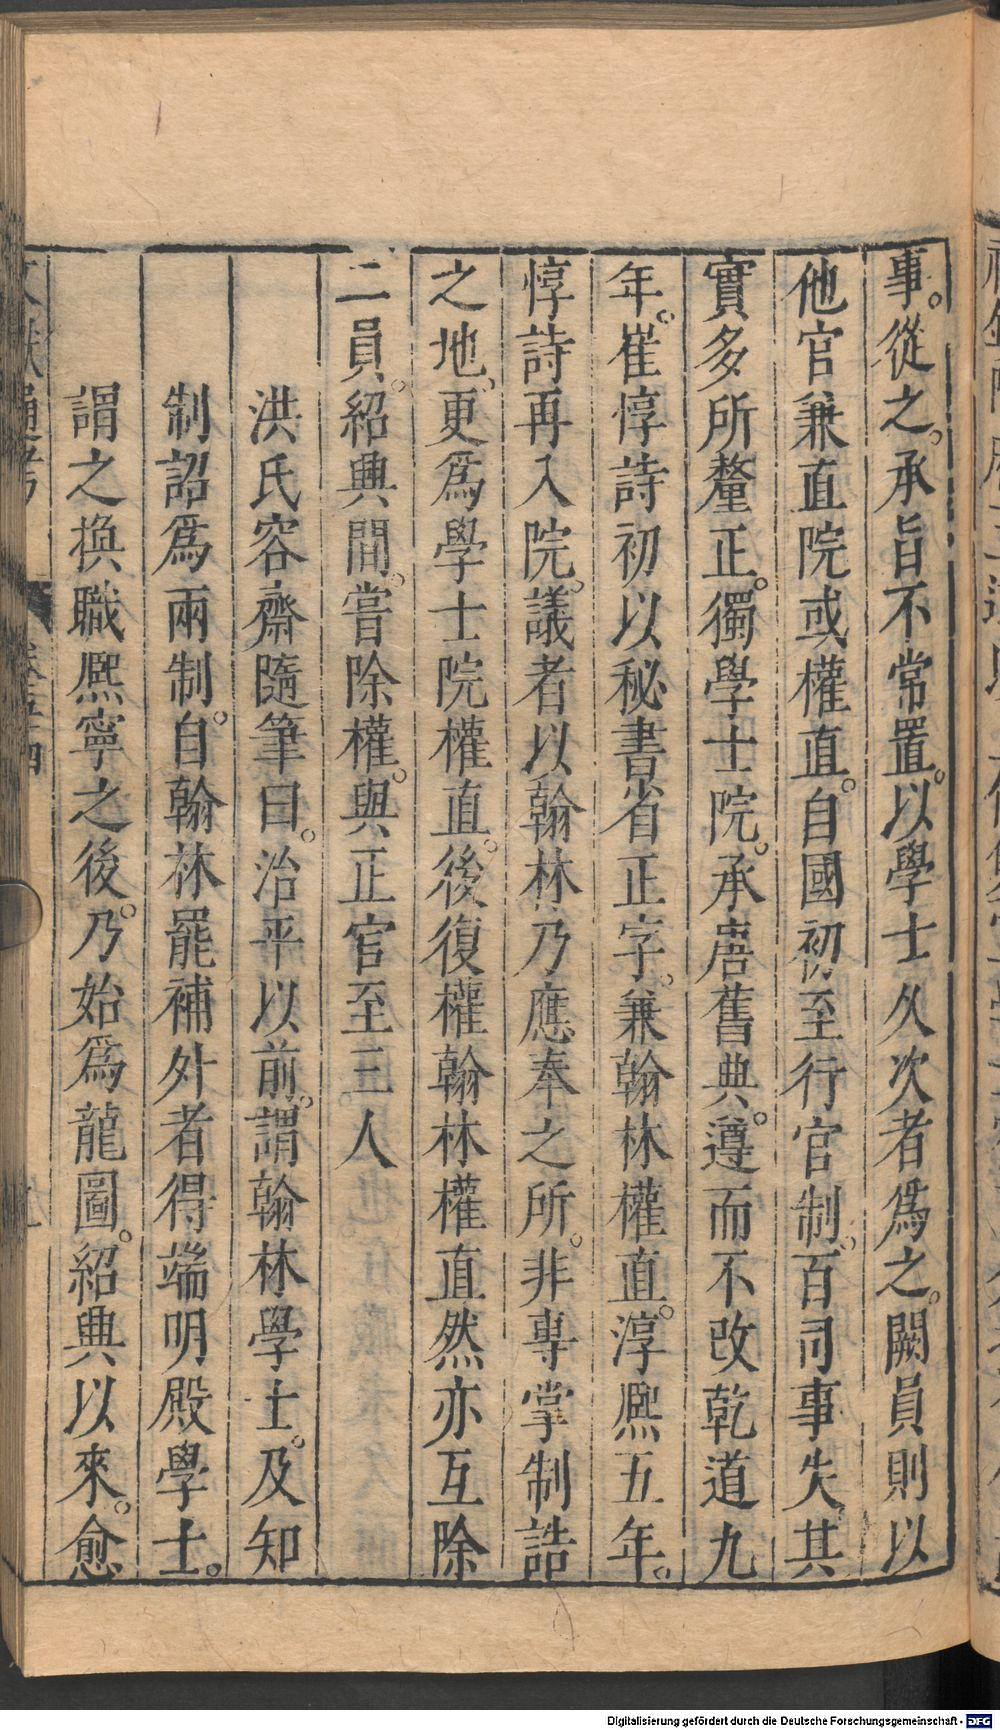 事。從之。承旨不常置。以學士久次者爲之。闕員則以
他官兼直院或權直。自國初至行官制。百司事失其
實多所釐正。獨學士院。承唐舊典。遵而不改乾道九
年。崔惇詩初以秘書省正字。兼翰林權直。淳熙五年。
惇詩再入院。議者以翰林乃應奉之所。非專掌制誥
之地。更爲學士院權直。後復權翰林權直然亦互除
二員。紹興間。嘗除權。與正官至三人
洪氏容齋隨筆曰。治平以前。謂翰林學士。及知
制詔爲兩制。自翰林罷補外者得端明殿學士。
謂之換職熈寧之後。乃始爲龍圖。紹興以來。愈
文獻通考
卷五十四
Digitalisierung gefördert durch die Deutsche Forschungsgemeinschaft - DFG